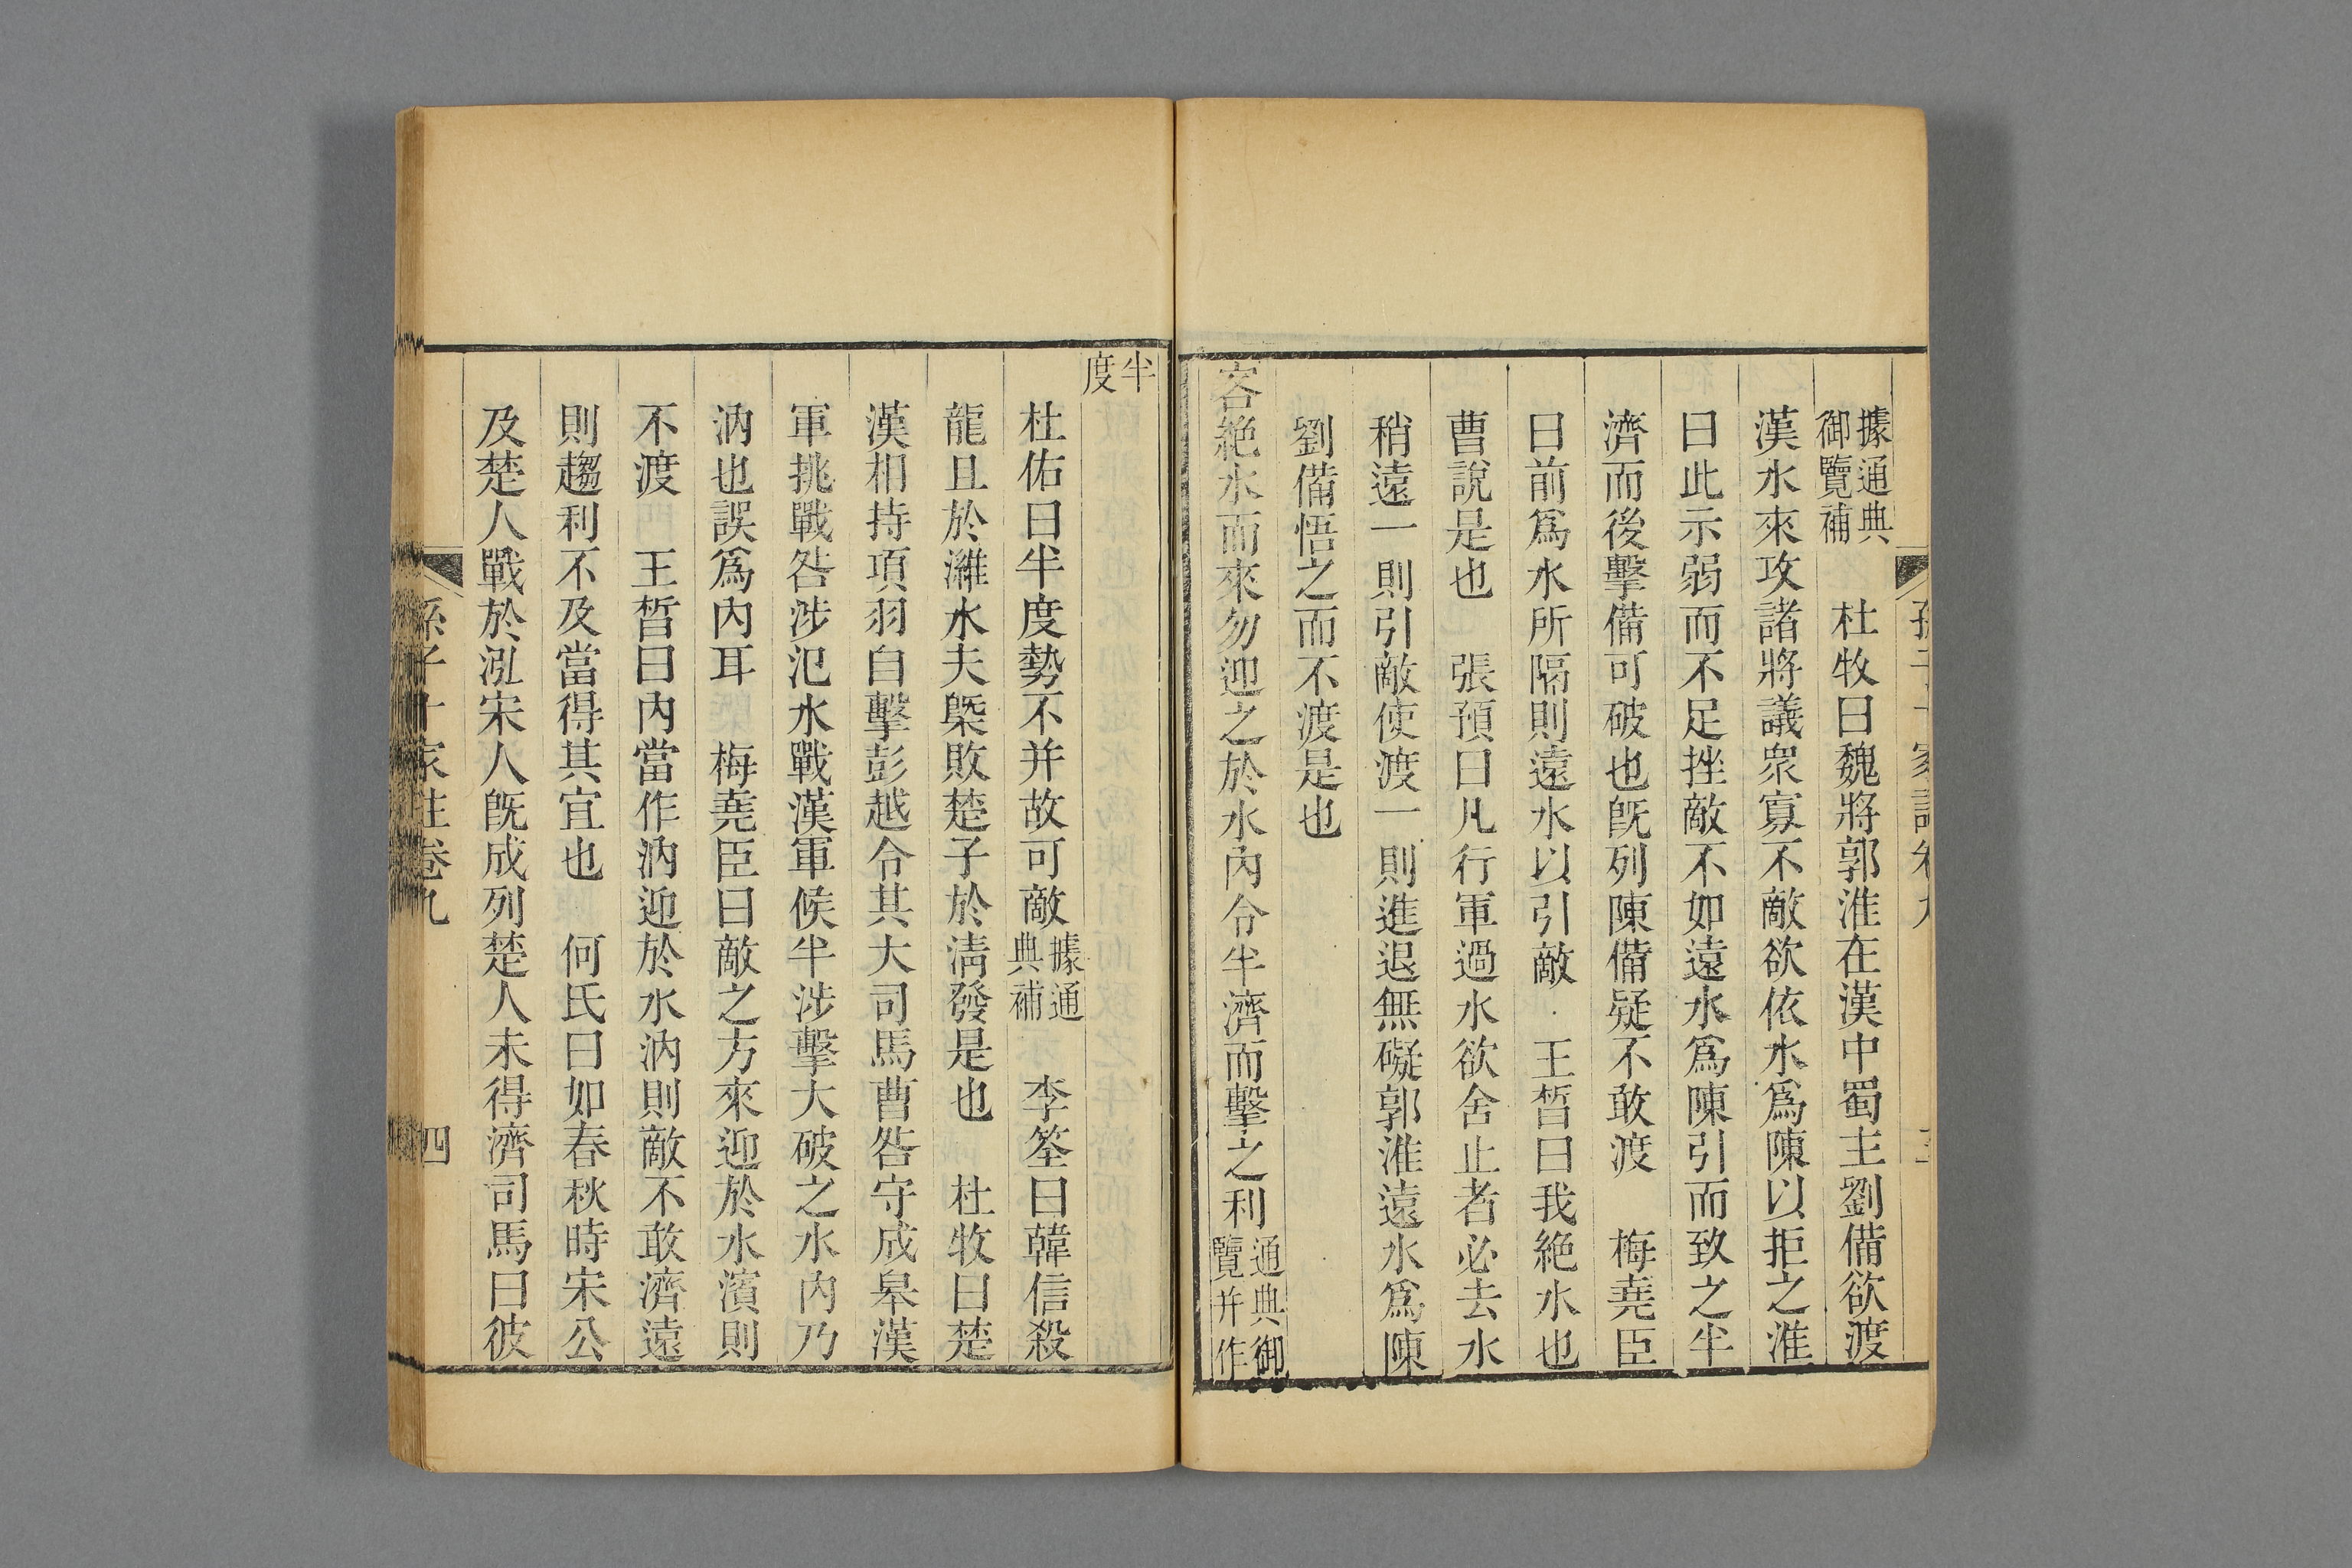 據通典
御覽補　杜牧曰魏將郭淮在漢中蜀主劉備欲渡
漢水來攻諸將議衆寡不敵欲依水爲陳以拒之淮
曰此示弱而不足挫敵不如遠水爲陳引而致之半
濟而後擊備可破也旣列陳備疑不敢渡　梅堯臣
曰前爲水所隔則遠水以引敵　王晳曰我絶水也
曹說是也　張預曰凡行軍過水欲舍止者必去水
稍遠一則引敵使渡一則進退無礙郭淮遠水爲陳
劉備悟之而不渡是也
客絶水而來勿迎之於水內令半濟而擊之利通典御
覽并作
半
度
杜佑曰半度勢不并故可敵據通
典補　李筌曰韓信殺
龍且於濰水夫槩敗楚子於淸發是也　杜牧曰楚
漢相持項羽自擊彭越令其大司馬曹咎守成皋漢
軍挑戰咎涉汜水戰漢軍候半涉擊大破之水內乃
汭也誤爲內耳　梅堯臣曰敵之方來迎於水濱則
不渡　王晳曰內當作汭迎於水汭則敵不敢濟遠
則趨利不及當得其宜也　何氏曰如春秋時宋公
及楚人戰於泓宋人旣成列楚人未得濟司馬曰彼
孫子十家注卷九　四